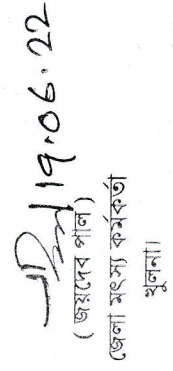 19.06.22
( জয়দেব পাল )
জেলা মৎস্য কর্মকর্তা
খুলনা।